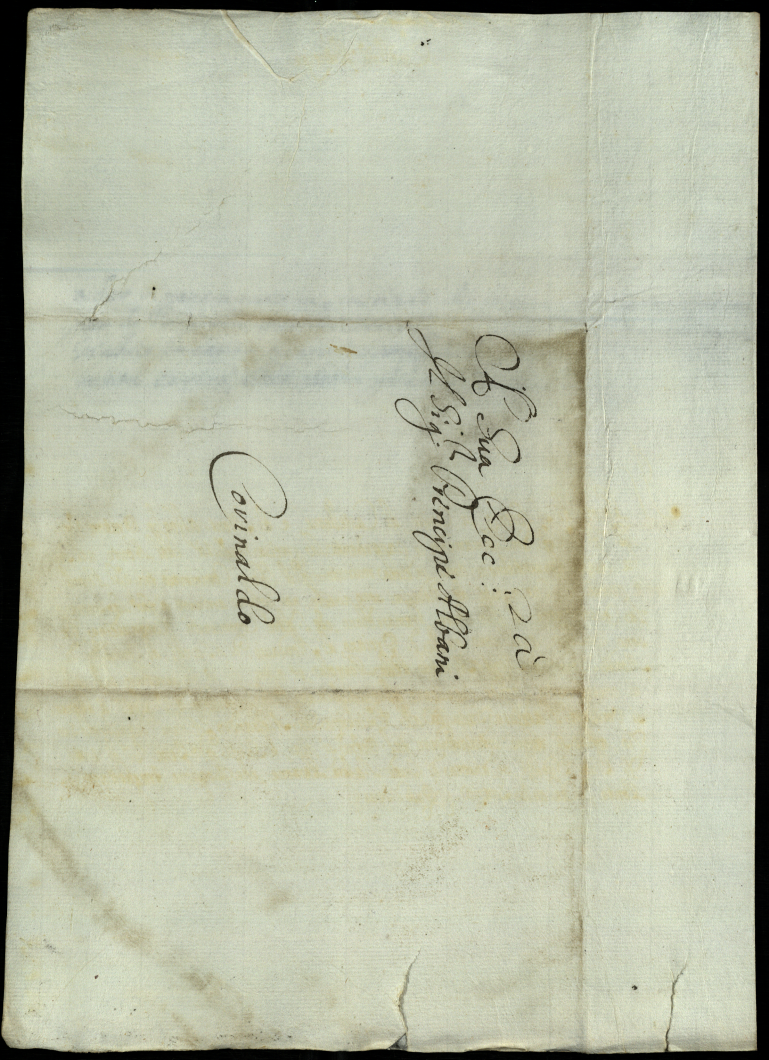 A Sua Ecc: za
Il Sig.r Principe Albani
Corinaldo